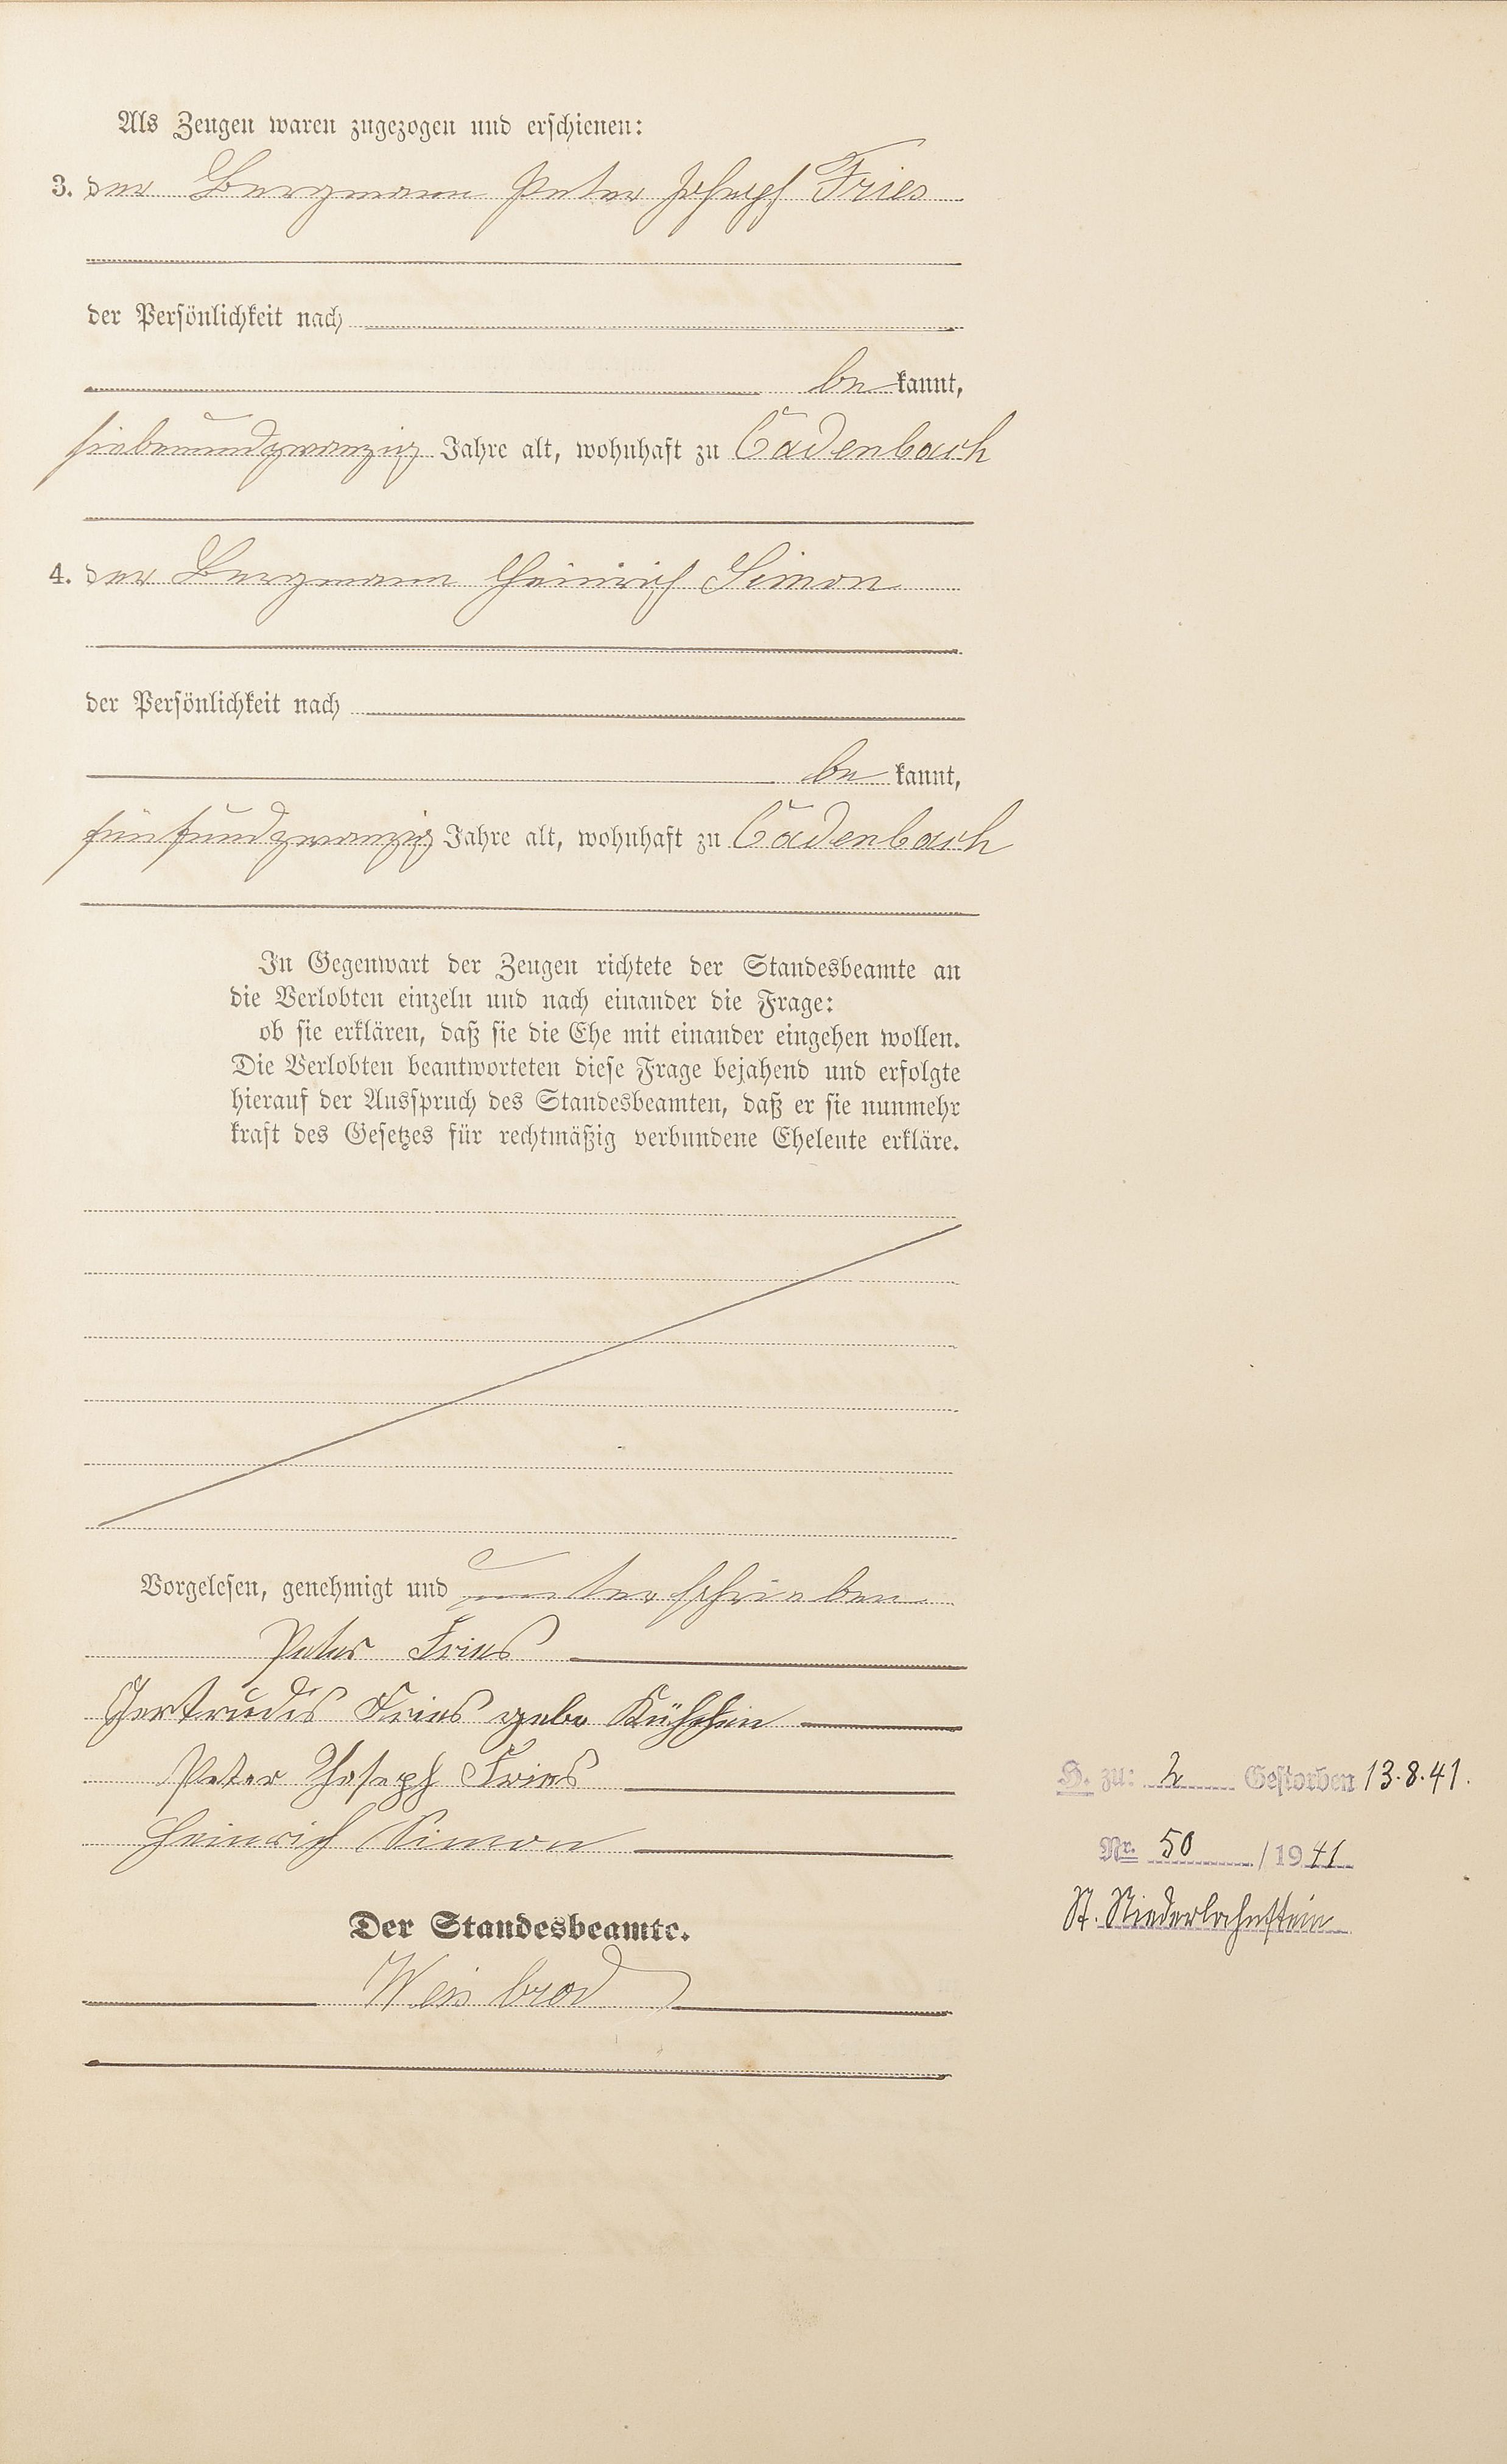 Als Zeugen waren zugezogen und erschienen:
3. der Bergmann Peter Joseph Fries
der Persönlichkeit nach
be kannt,
siebenundzwanzig Jahre alt, wohnhaft zu Cadenbach
4. der Bergmann Heinrich Simon
der Persönlichkeit nach
be kannt,
fünfundzwanzig Jahre alt, wohnhaft zu Cadenbach
In Gegenwart der Zeugen richtete der Standesbeamte an
die Verlobten einzeln und nach einander die Frage:
ob sie erklären, daß sie die Ehe mit einander eingehen wollen.
Die Verlobten beantworteten diese Frage bejahend und erfolgte
hierauf der Ausspruch des Standesbeamten, daß er sie nunmehr
kraft des Gesetzes für rechtmäßig verbundene Eheleute erkläre.
Vorgelesen, genehmigt und unterschrieben
Peter Fries
Gertrudis Fries gebr
Peter Joseph Fries
Heinrich Simon
Der Standesbeamte.
Weisbrod
H. zu: 2 Gestorben 13.8.41.
Nr. 50 / 1941
St. Niederlahnstein